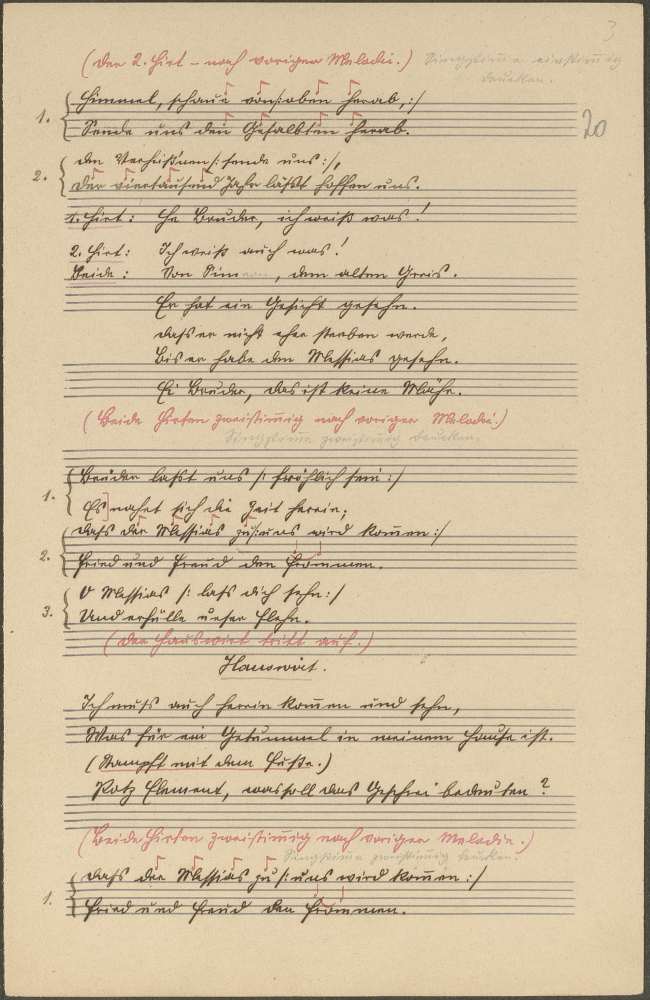 3
(Der 2. Hirt – nach voriger Melodie.) Singstimme einstimmig
drucken.
20
1. Himmel, schaue von oben herab, :/
Sende uns den Gesalbten herab.
2. den Verheißnen /: sende uns :/,
Der viertausend Jahr läßt hoffen uns.
1. Hirt: He Bruder, ich weiß was!
2. Hirt: Ich weiß auch was!
Beide: Von Simeon, dem alten Greis.
Er hat ein Gesicht gesehn.
daß er nicht eher sterben werde,
Bis er habe den Messias gesehn.
Ei Bruder, das ist keine Mähr.
(Beide Hirten zweistimmig nach voriger Melodie.)
Singstimme zweistimmig drucken.
1. Brüder laßt uns /: fröhlich sein :/
Es nahet sich die Zeit herein;
2. daß der Messias zu /: uns wird kom̄en :/
Fried und Freud den Frommen.
3. O Messias /: laß dich sehn :/
Und erfülle unser Flehn.
(Der Hauswirt tritt auf.)
Hauswirt.
Ich muß auch herein kom̄en und sehn,
Was für ein Getummel in meinem Hause ist.
(Stampft mit dem Fuße.)
Potz Element, was soll das Geschrei bedeuten?
(Beide Hirten zweistim̄ig nach voriger Melodie.)
Singstimme zweistimmig drucken.
1. daß der Messias zu /: uns wird kom̄en :/
Fried und Freud den Frommen.